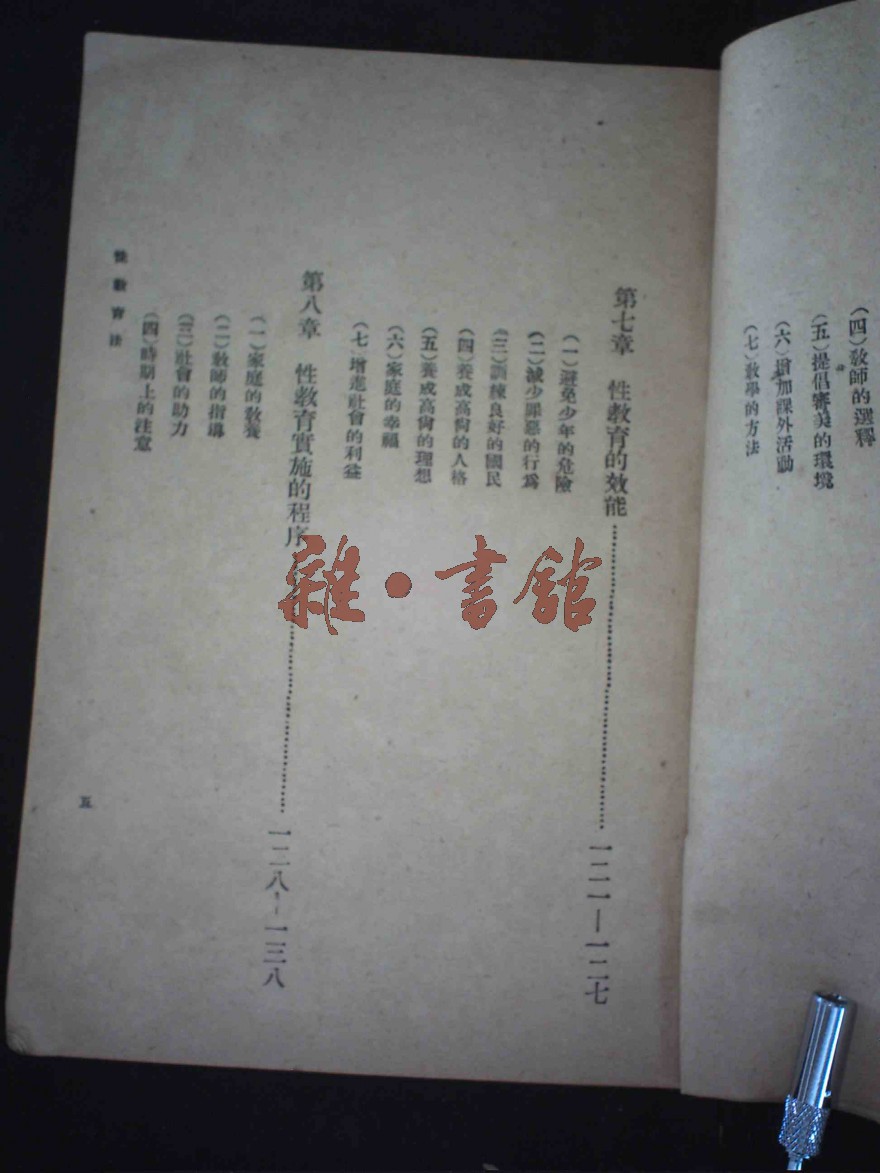 (四)教師的選釋
(五)提倡審美的環境
(六)增加課外活動
(七)教學的方法
第七章 性教育的效能……一二一—一二七
(一)避免少年的危險
(二)減少罪惡的行爲
(三)訓練良好的國民
(四)養成高尙的人格
(五)養成高尙的理想
(六)家庭的幸福
(七)增進社會的利益
第八章 性教育實施的程序……一二八—一三八
(一)家庭的教養
(二)教師的指導
(三)社會的助力
(四)時期上的注意
性教育法
五
雜·書館